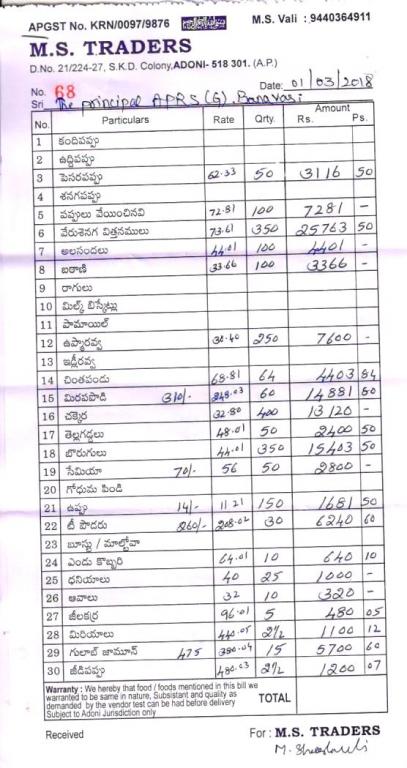 APGST No. KRN/0097/9876 M.S. Vali : 9440364911
M.S. TRADERS
D.No. 21/224-27, S.K.D. Colony, ADONI- 518 301. (A.P.)
No. 68 Date: 01/03/2018
Sri The principal APRS (G), Banavasi
No. Particulars Rate Qrty. Amount Rs. Ps.
1 కందిపప్పు
2 ఉద్దిపప్పు
3 పెసరపప్పు 62.33 50 3116 50
4 శనగపప్పు
5 పప్పులు వేయించినవి 72.81 100 7281 -
6 వేరుశెనగ విత్తనములు 73.61 350 25763 50
7 అలసందలు 44.01 100 4401 -
8 బఠాణి 33.66 100 3366 -
9 రాగులు
10 మిల్క్ బిస్కెట్లు
11 పామాయిల్
12 ఉప్మారవ్వ 30.40 250 7600 -
13 ఇడ్లీరవ్వ
14 చింతపండు 68.81 64 4403 84
15 మిరపపొడి 310/- 248.03 60 14881 80
16 చక్కెర 32.80 400 13120 -
17 తెల్లగడ్డలు 48.01 50 2400 50
18 బొరుగులు 44.01 350 15403 50
19 సేమియా 70/- 56 50 2800 -
20 గోధుమ పిండి
21 ఉప్పు 14/- 11.21 150 1681 50
22 టీ పొడరు 260/- 208.02 30 6240 60
23 బూస్టు / మాల్టోవా
24 ఎండు కొబ్బరి 64.01 10 640 10
25 ధనియాలు 40 25 1000 -
26 ఆవాలు 32 10 320 -
27 జీలకర్ర 96.01 5 480 05
28 మిరియాలు 440.05 2½ 1100 12
29 గులాబ్ జామూన్ 475 380.04 15 5700 60
30 జీడిపప్పు 480.03 2½ 1200 07
Warranty : We hereby that food / foods mentioned in this bill we
warranted to be same in nature, Subsistant and quality as
demanded by the vendor test can be had before delivery
Subject to Adoni Jurisdiction only
TOTAL
Received For : M.S. TRADERS